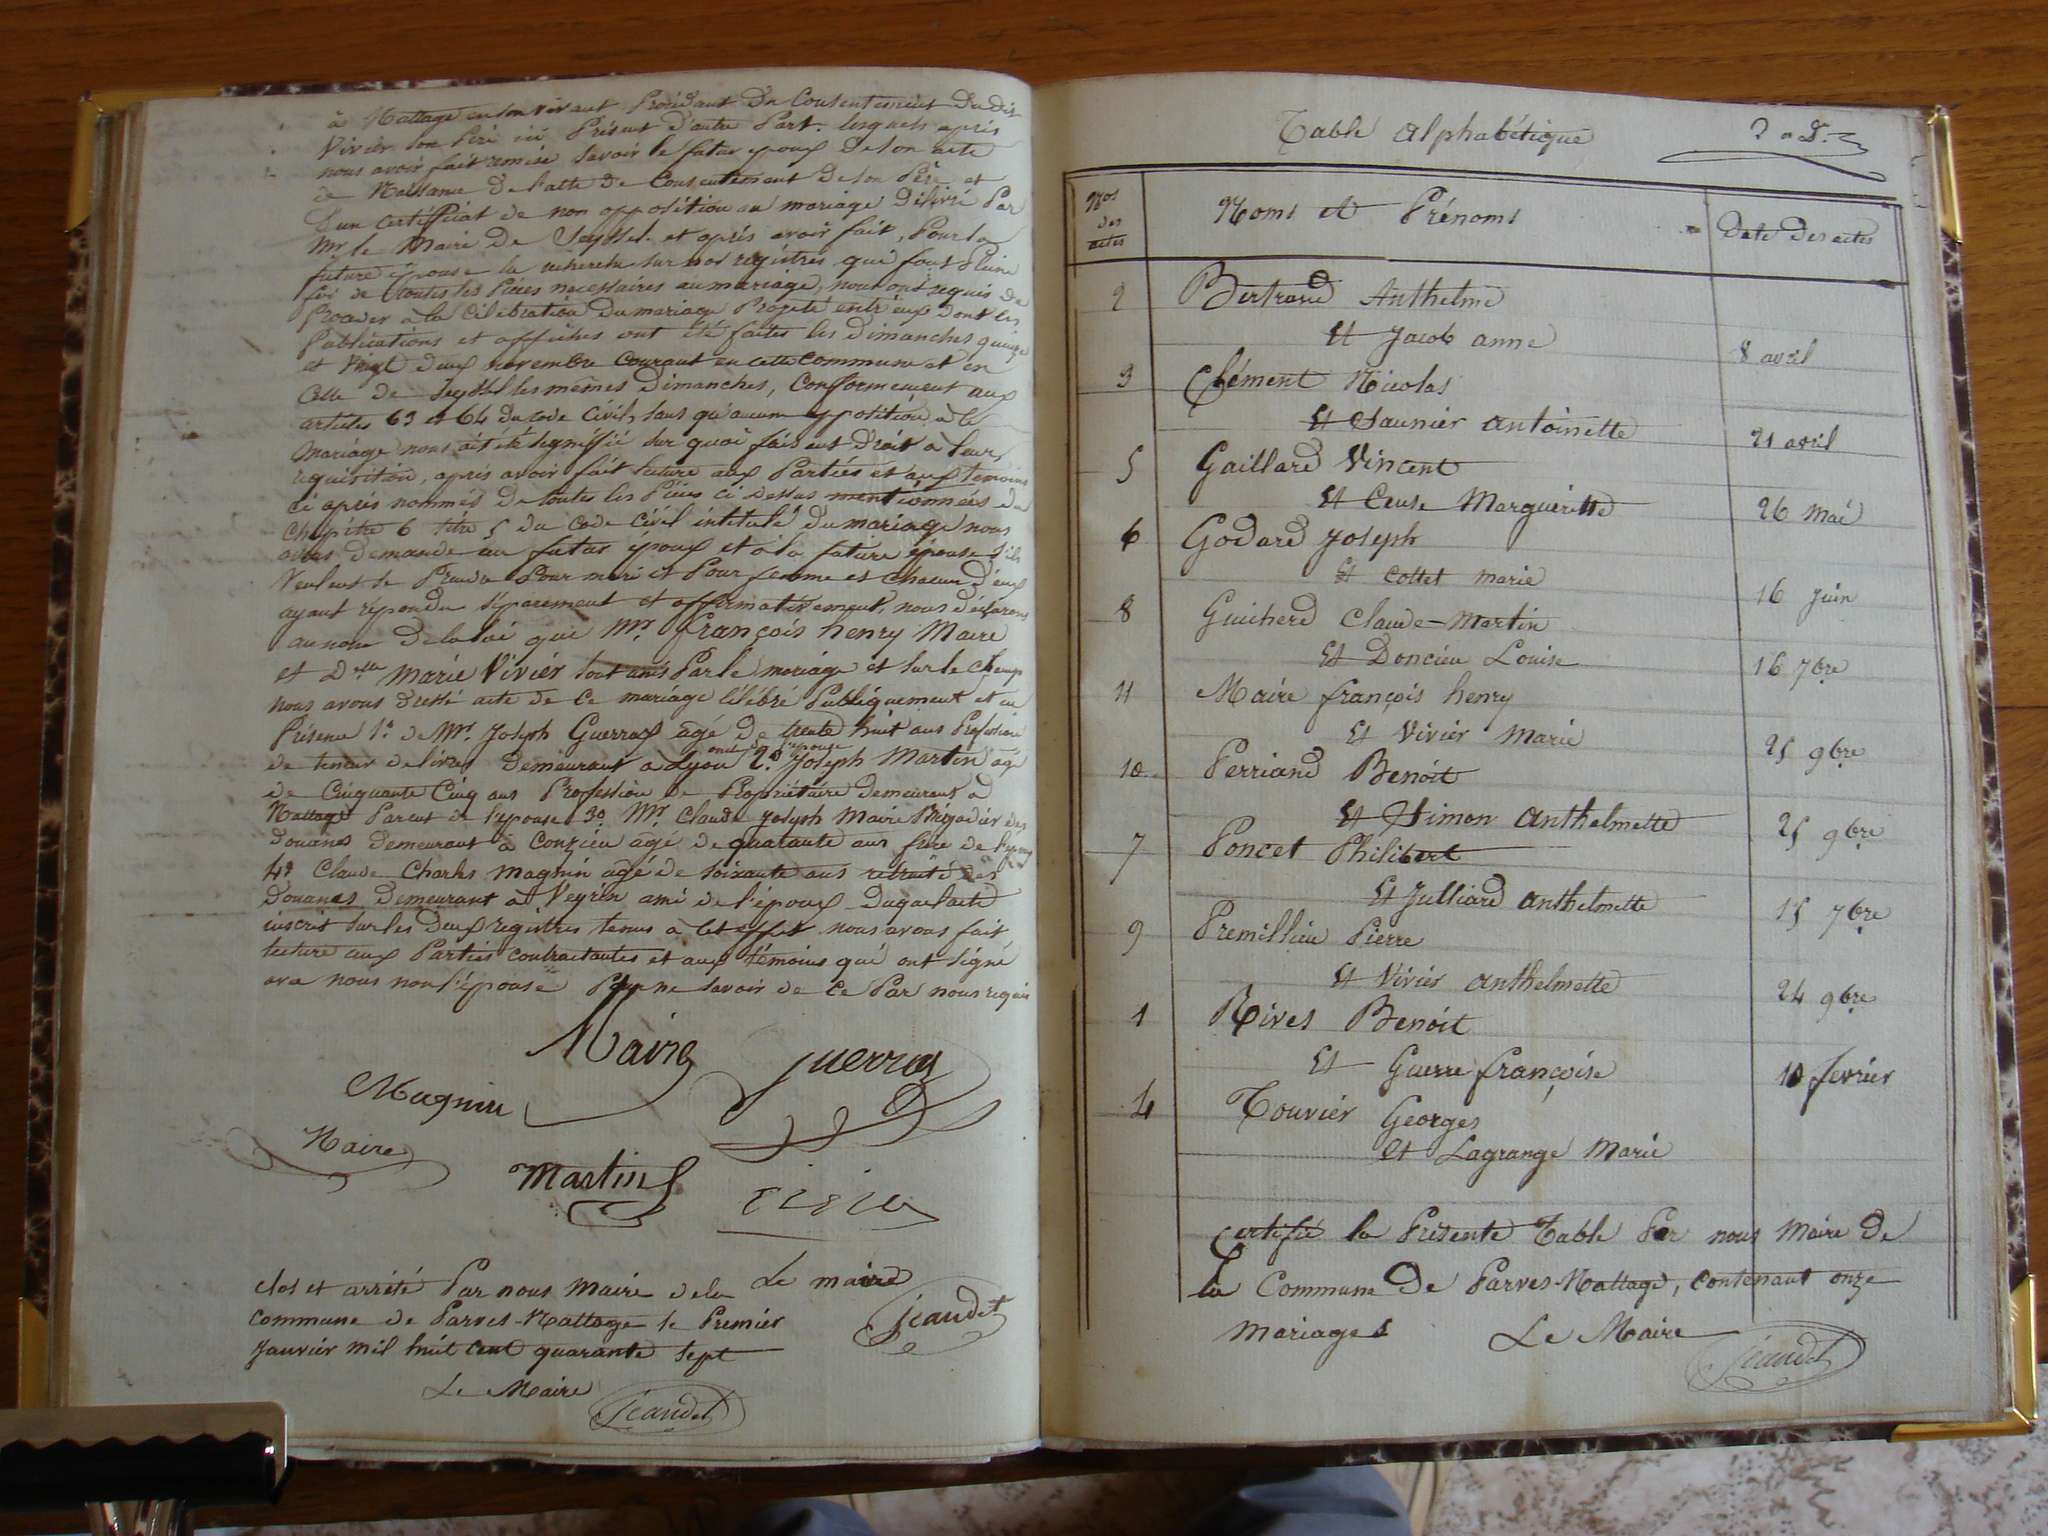 à Nattage en son vivant Procédant du Consentement du dit
Vivier son Péré ici Présent d'autre Part. lesquels après
nous avoir fait remise savoir le futur époux de son acte
de Naissance de l'acte de Consentement de son Péré et
d'un certifficat de non opposition au mariage délivré Par
Mr. le Maire de Seyssel. et après avoir fait, Pour la
future épouse la recherche sur nos régistres qui font Pleine
foi de toutes les Pièces necessaires au mariage, nous ont requis de
Proceder à la célébration du mariage Projeté entr'eux dont les
Publications et affiches ont été faites les Dimanches quinze
et Vingt deux novembre courant en cette commune et en
celle de Seyssel les mêmes Dimanches, Conformement aux
articles 63 et 64 du code Civil, sans qu'aucune opposition à ce
mariage nous ait été signiffié sur quoi faisant Droit à leur
requisition, après avoir fait lecture aux Parties et aux temoins
ci après nommés de toutes les Pièces ci dessus mentionnées du
Chapitre 6 titre 5 du code civil intitulé du mariage nous
avons demandé au futur époux et à la future épouse s'ils
veulent se Prendre Pour mari et Pour femme et chacun d'eux
ayant répondu séparement et affirmativement, nous déclarons
au nom de la loi que Mr. françois henry Maire
et Dlle Marie Vivier sont unis Par le mariage et sur le champ
nous avons dressé acte de ce mariage célébré Publiquement et en
Présence 1º de Mr. Joseph Guerraz agé de trente huit ans Profession
oncle de l'épouse
de teneur de livres demeurant à Lyon 2º Joseph Martin agé
de Cinquante Cinq ans Profession de Propriétaire demeurant à
Nattage Parent de l'epouse 3º Mr Claude Joseph Maire Brigadier des
douanes demeurant à Conzieu agé de quarante ans frere de l'epoux
4º Claude Charles Magnin agé de soixante ans retraité des
Douanes Demeurant à Veyrin ami de l'époux duquel acte
inscrit sur les deux registres tenus à cet effet nous avons fait
lecture aux Parties contractantes et aux témoins qui ont signé
avec nous non l'épouse Pour ne savoir de ce Par nous requise
Maire Guerraz
Magnin
Maire
Martin
Le maire
Jeandet
clos et arrété Par nous Maire de la
commune de Parves-Nattage le Premier
Janvier mil huit cent quarante sept
Le Maire
Jeandet
Table alphabétique
Nos des actes Noms et Prénoms Date des actes
2 Bertrand Anthelme
et Jacob anne 8 avril
3 Clément Nicolas
et Saunier antoinette 21 avril
5 Gaillard Vincent
et Ceuse Margueritte 26 mai
6 Godard Joseph
et Collet marie 16 juin
8 Guicherd Claude-Martin
et Doncieu Louise 16 7bre
11 Maire françois henry
et Vivier Marie 25 9bre
10 Perriand Benoit
et Simon anthelmette 25 9bre
7 Poncet Philibert
et Julliard anthelmette 15 7bre
9 Premillieu Pierre
et Vivier anthelmette 24 9bre
1 Rives Benoit
et Guerre françoise 10 fevrier
4 Touvier Georges
et Lagrange Marie
Certifié la Présente Table Par nous Maire de
la Commune de Parves-Nattage, contenant onze
mariages Le Maire
Jeandet